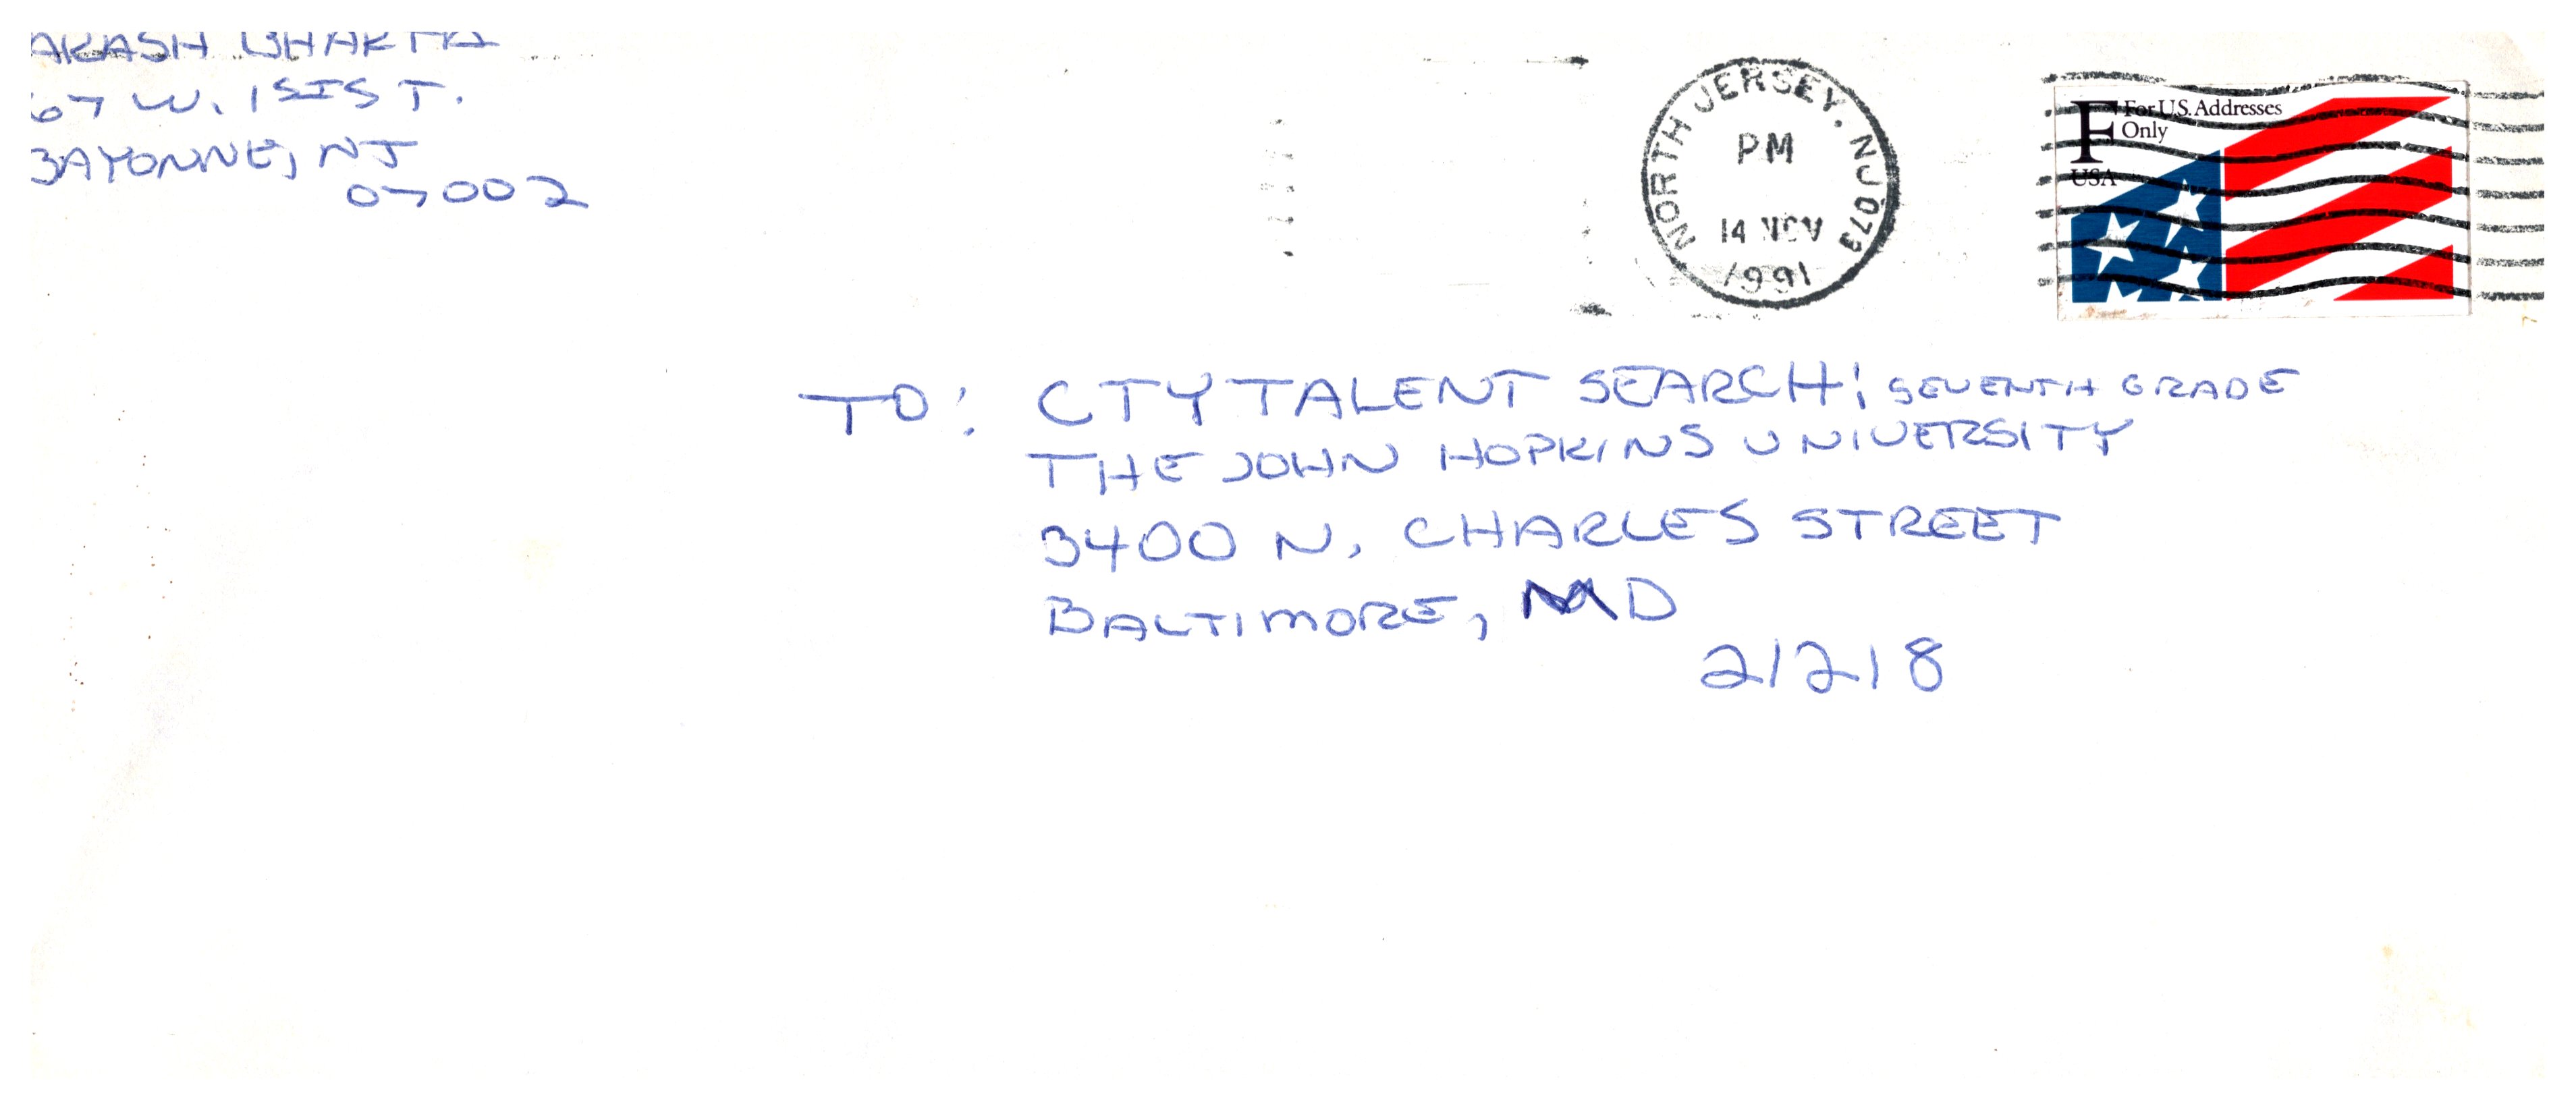 AKASH BHAKTA
67 W. 1STST.
BAYONNE, NJ
07002
NORTH JERSEY, NJ 073
PM
14 NOV
1991
F For U.S. Addresses
Only
USA
TO: CTY TALENT SEARCH: SEVENTH GRADE
THE JOHN HOPKINS UNIVERSITY
3400 N. CHARLES STREET
BALTIMORE, MD
21218